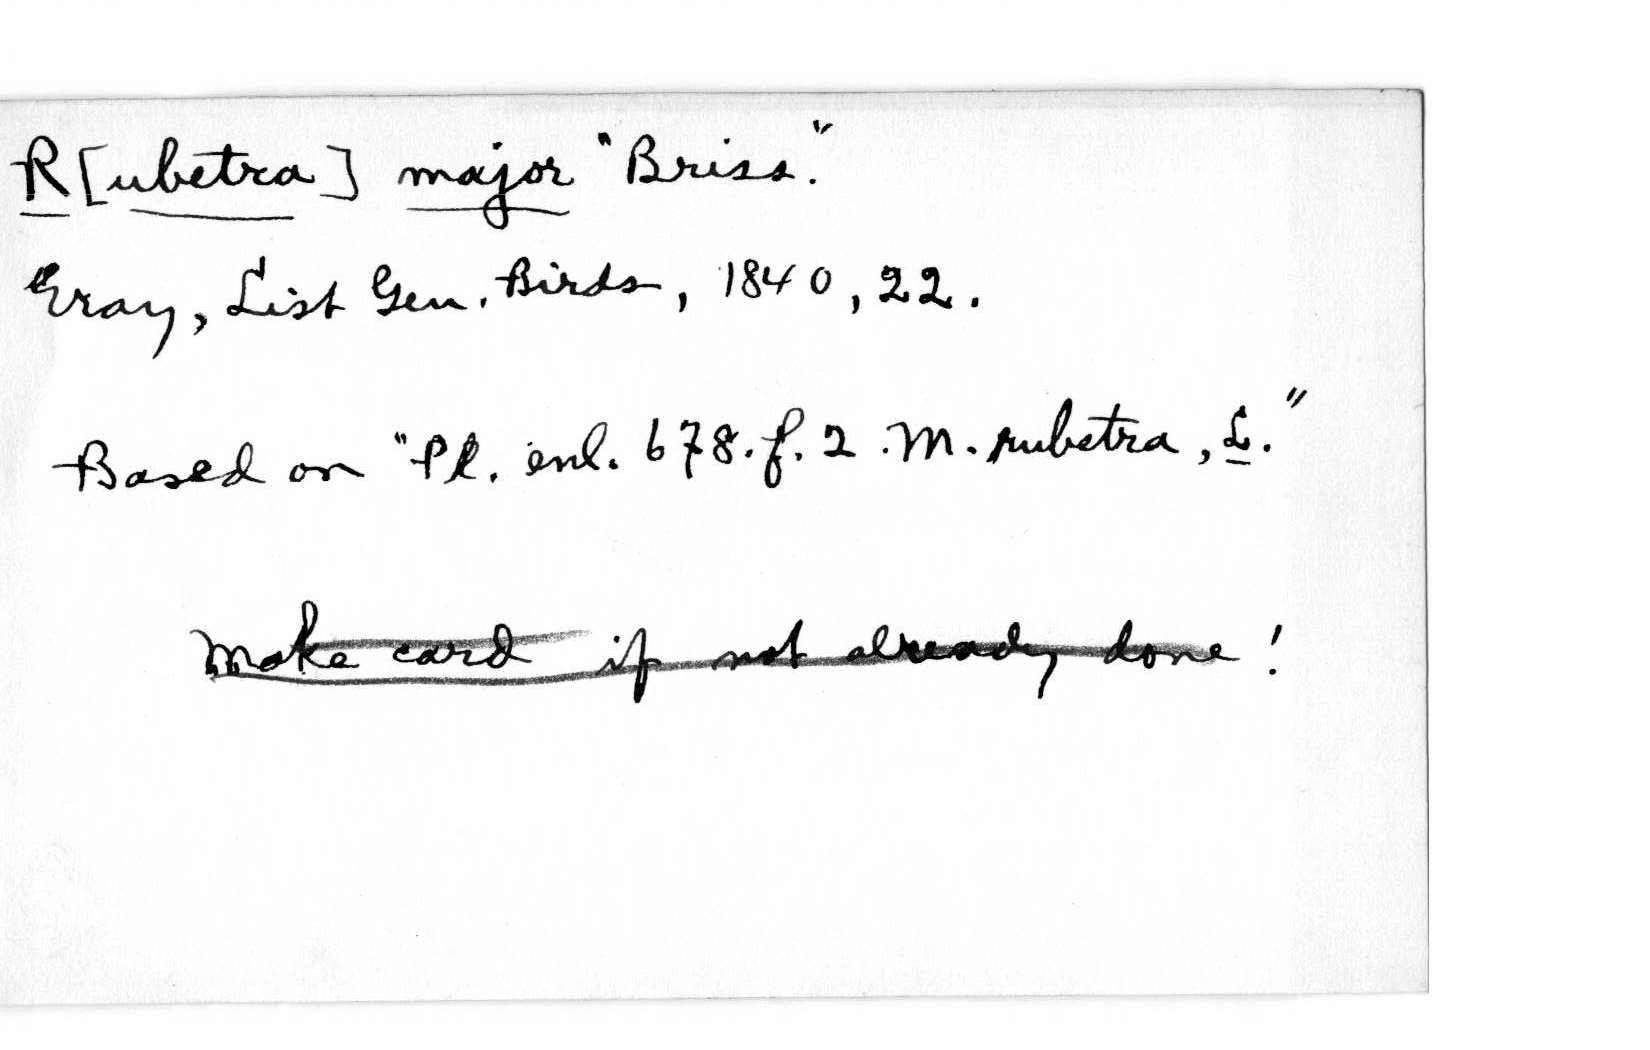 R[ubetra] major "Briss."
Gray, List Gen. Birds, 1840, 22.
Based on "Pl. enl. 678. f. 2. M. rubetra, L."
Make card if not already done!